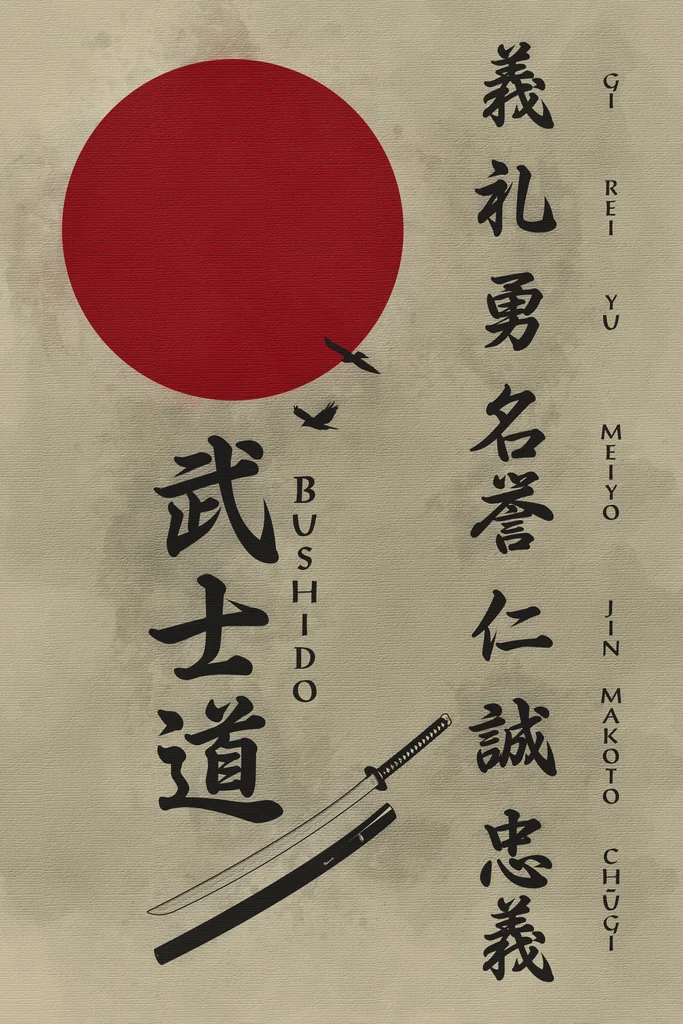 武士道
BUSHIDO
義
GI
礼
REI
勇
YU
名誉
MEIYO
仁
JIN
誠
MAKOTO
忠義
CHŪGI